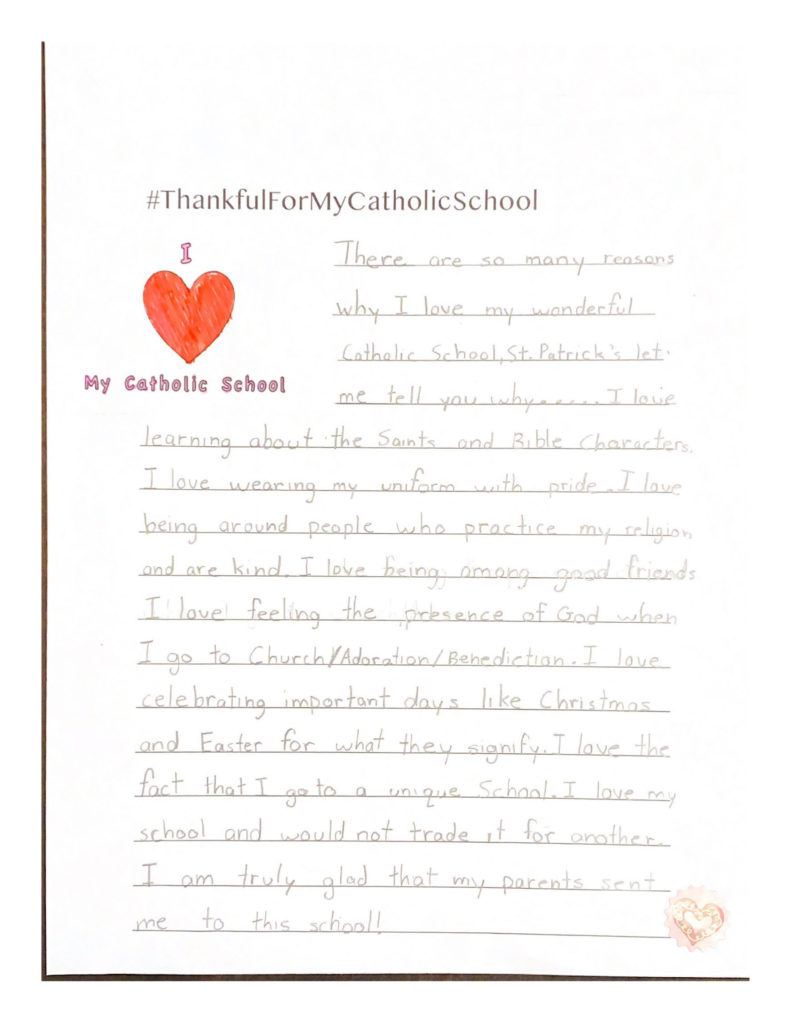 #ThankfulForMyCatholicSchool
I
My Catholic School
There are so many reasons
why I love my wonderful
Catholic School, St. Patrick's let
me tell you why...... I love
learning about the Saints and Bible Characters.
I love wearing my uniform with pride. I love
being around people who practice my religion
and are kind. I love being among good friends
I love feeling the presence of God when
I go to Church/Adoration/Benediction. I love
celebrating important days like Christmas
and Easter for what they signify. I love the
fact that I go to a unique School. I love my
school and would not trade it for another.
I am truly glad that my parents sent
me to this school!